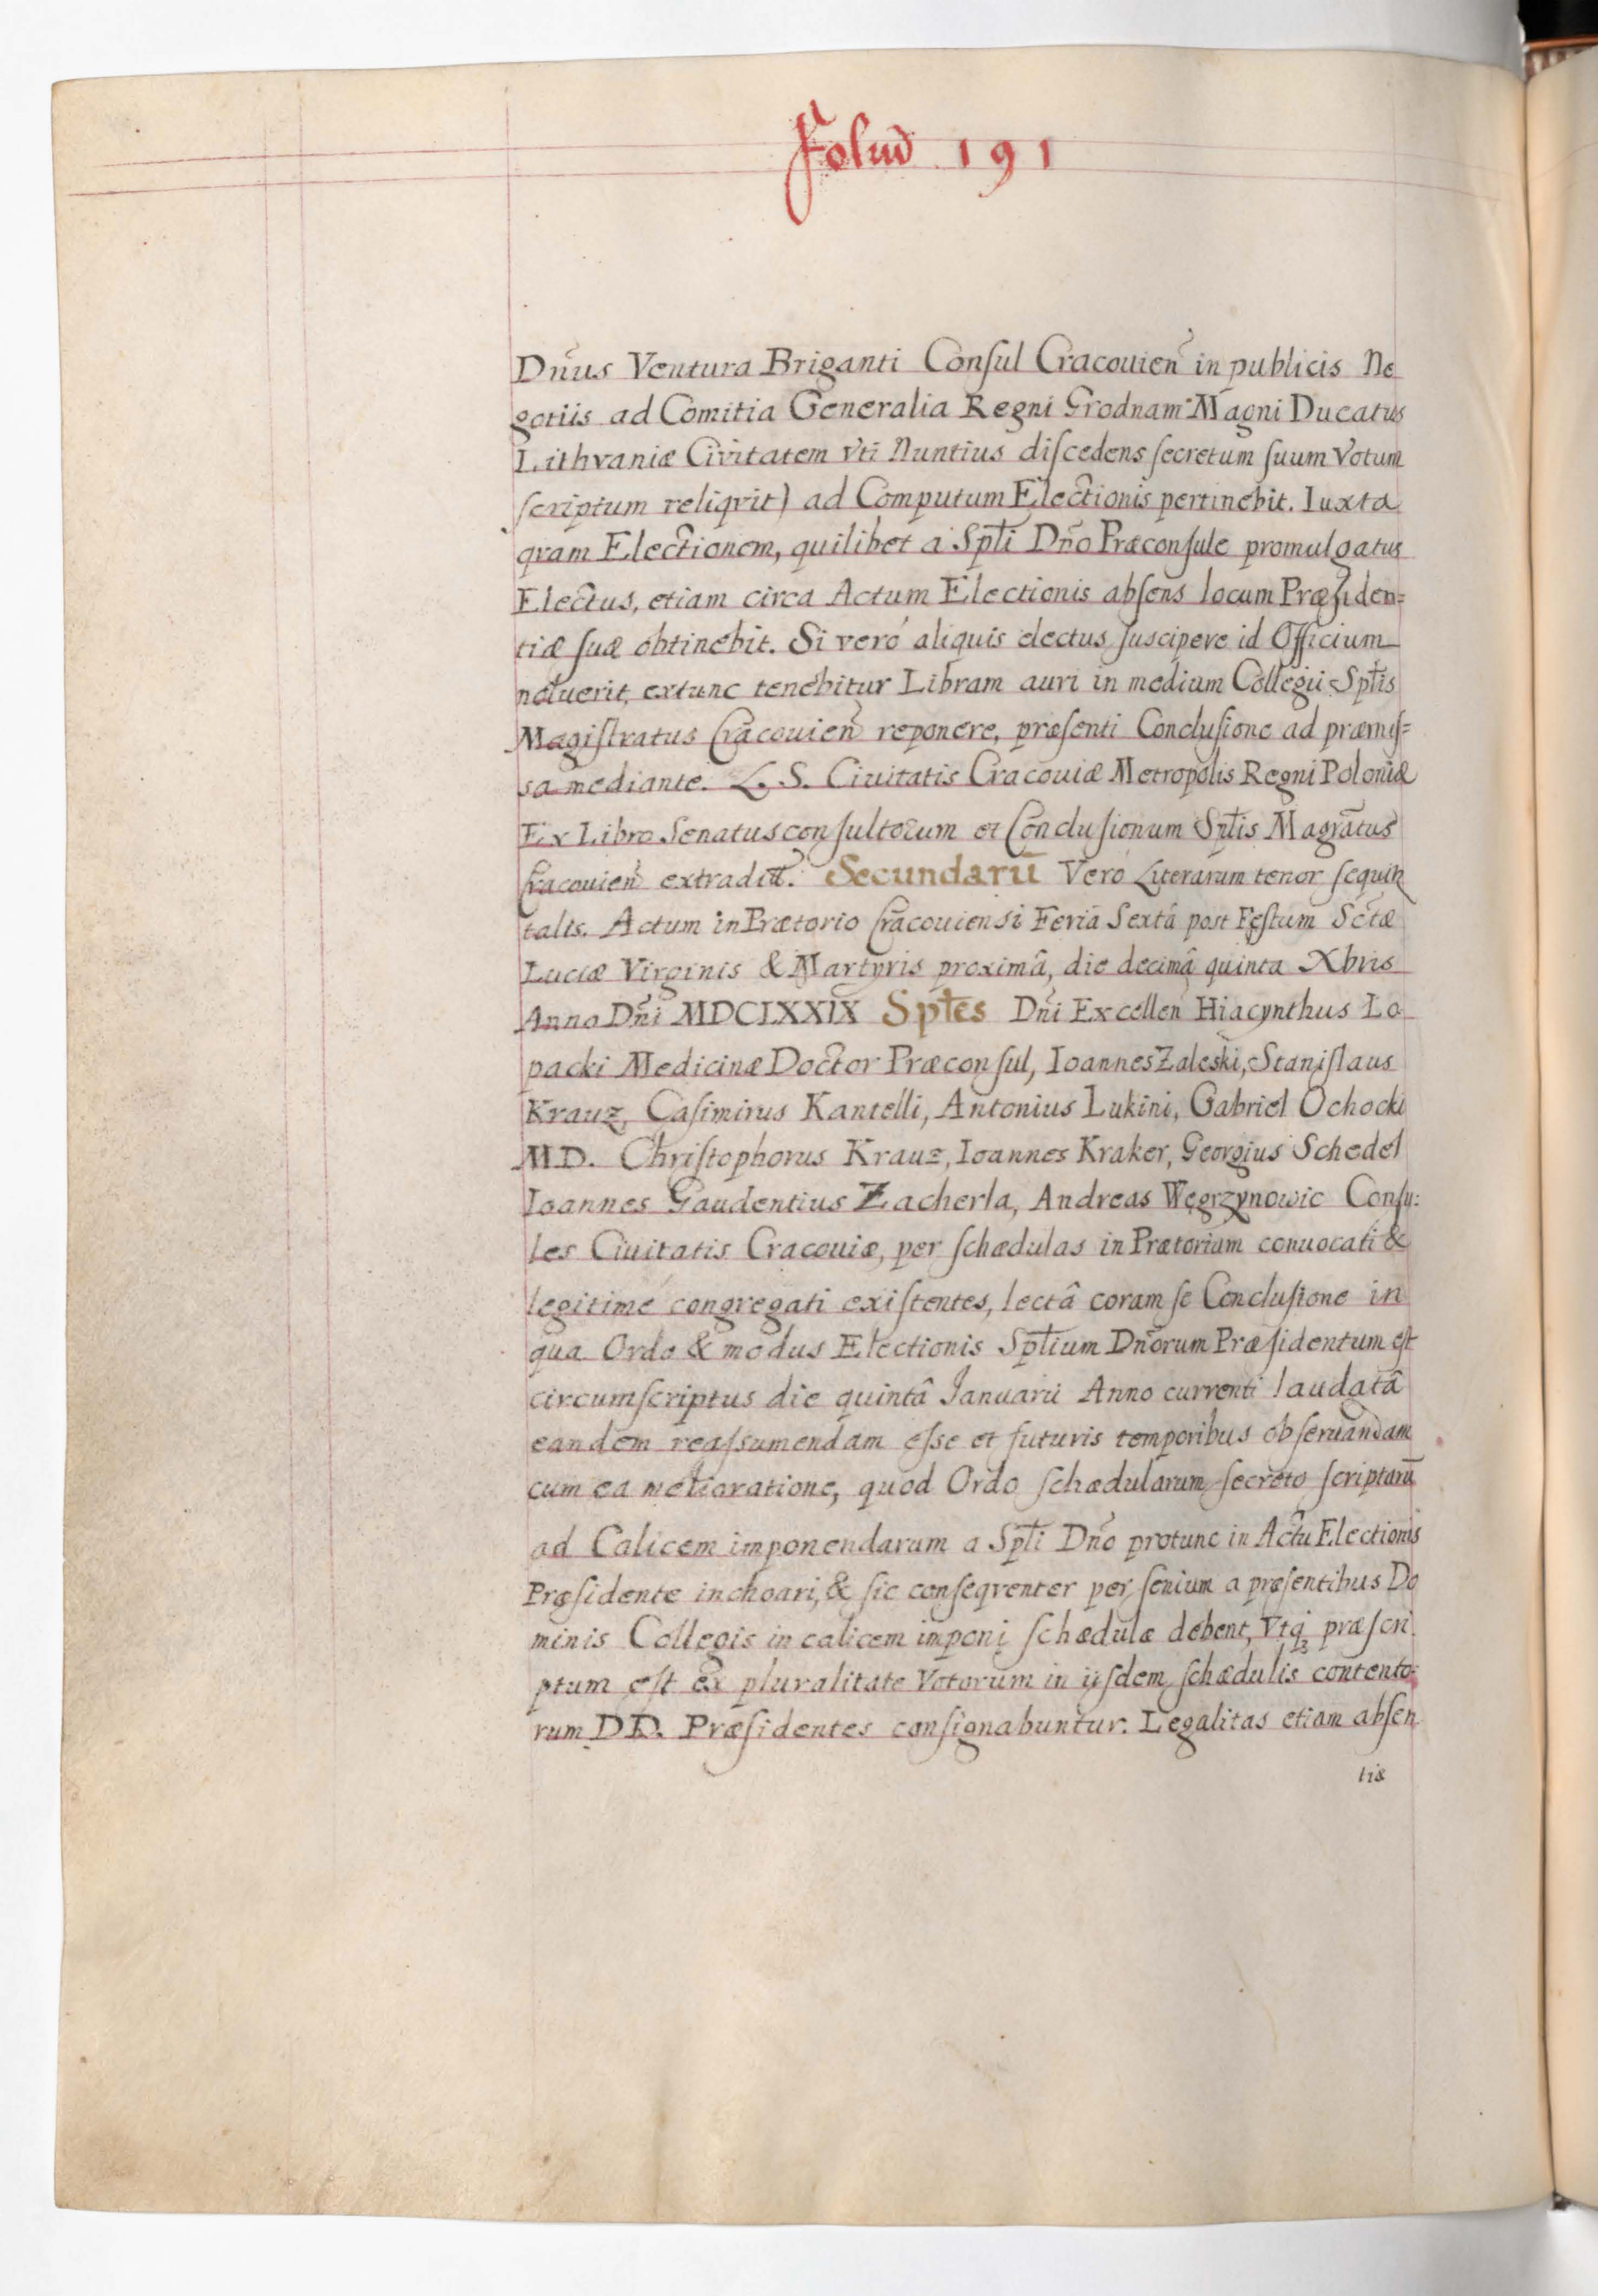 Foliũ 191
Dñus Ventura Briganti Conſul Cracouien̄ in publicis Ne
gotiis ad Comitia Generalia Regni Grodnam Magni Ducatus
Lithvaniæ Civitatem vti Nuntius diſcedens ſecretum ſuum Votum
ſcriptum reliqvit) ad Computum Electionis pertinebit. Iuxta
qvam Electionem, quilibet a Sptłi Dño Præconſule promulgatus
Electus, etiam circa Actum Electionis abſens locum Præſiden=
tiæ ſuæ obtinebit. Si veró aliquis electus ſuscipere id Officium
noluerit, extunc tenebitur Libram auri in medium Collegii Sptłis
Magiſtratus Cracouien̄ reponere, præſenti Concluſione ad præmiſ=
sa mediante. L. S. Ciuitatis Cracouiæ Metropolis Regni Poloniæ
Ex Libro Senatusconſultorum et Concluſionum Sptłis Magrãtus
Cracouien̄ extradit̃. Secundarũ Vero Literarum tenor ſequit̃
talis. Actum in Prætorio Cracouiensi Feriâ Sextâ post Feſtum Sctæ
Luciæ Virginis & Martyris proximâ, die decimâ quinta Xbris
Anno Dñi MDCLXXIX Sptłes Dñi Excellen̄ Hiacynthus Lo
packi Medicinæ Doctor Præconſul, Ioannes Zaleski, Staniſlaus
Krauz, Caſimirus Kantelli, Antonius Lukini, Gabriel Ochocki
M.D. Chriſtophorus Krauz, Ioannes Kraker, Georgius Schedel
Ioannes Gaudentius Zacherla, Andreas Węgrzynowic Conſu:
les Ciuitatis Cracouiæ, per ſchædulas in Prætorium conuocati &
legitimé congregati exiſtentes, lectâ coram ſe Concluſione in
qua Ordo & modus Electionis Sptłium Dñorum Præſidentum eſt
circumſcriptus die quintâ Ianuarii Anno currenti laudatâ
eandem reaſsumendam eſse et futuris temporibus obſeruandam
cum ea melioratione, quod Ordo ſchædularum ſecreto ſcriptarũ
ad Calicem imponendarum a Sptłi Dño protunc in Actu Electionis
Præſidente inchoari, & ſic conſeqventer per ſenium a præſentibus Do
minis Collegis in calicem imponi ſchædulæ debent, Vtq; præſcri
ptum eſt ex pluralitate Votorum in iiſdem ſchædulis contento:
rum DD. Præſidentes conſignabuntur. Legalitas etiam abſen
tiæ